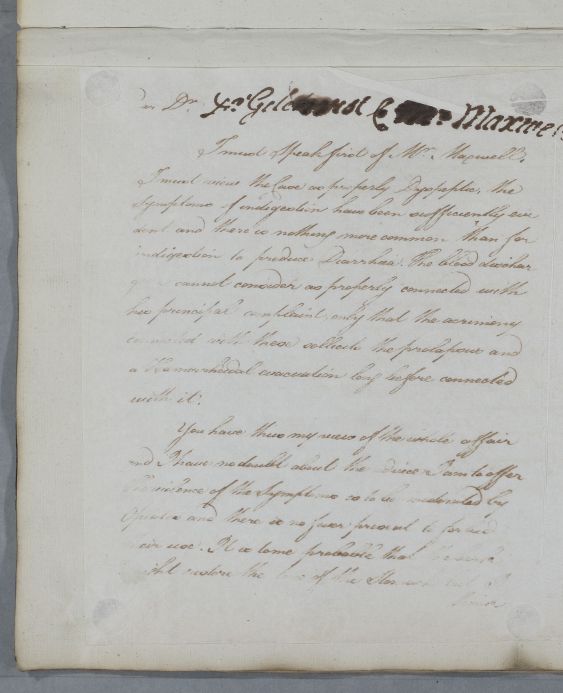 Dr. Gilchrist Mr. Maxwell
I must speak first of Mr. Maxwell.
I must view the Case as properly Dyspeptic, the
Symptoms of indigestion have been sufficiently evi
dent and there is nothing more common than for
indigestion to produce Diarrhœa. The blood dischar
I cannot consider as properly connected with
his principal complaint, only that the acrimony
connected with these sollicits the prolapsus and
a Hæmorrhoidal evacuation long before connected
with it.
You have thus my view of the whole affair
and I have no doubt about the advice I am to offer
The violence of the Symptoms is to be moderated by
Opiates and there is no fever present to forbid
their use. It is to me probable that
restore the tone of the Stomach